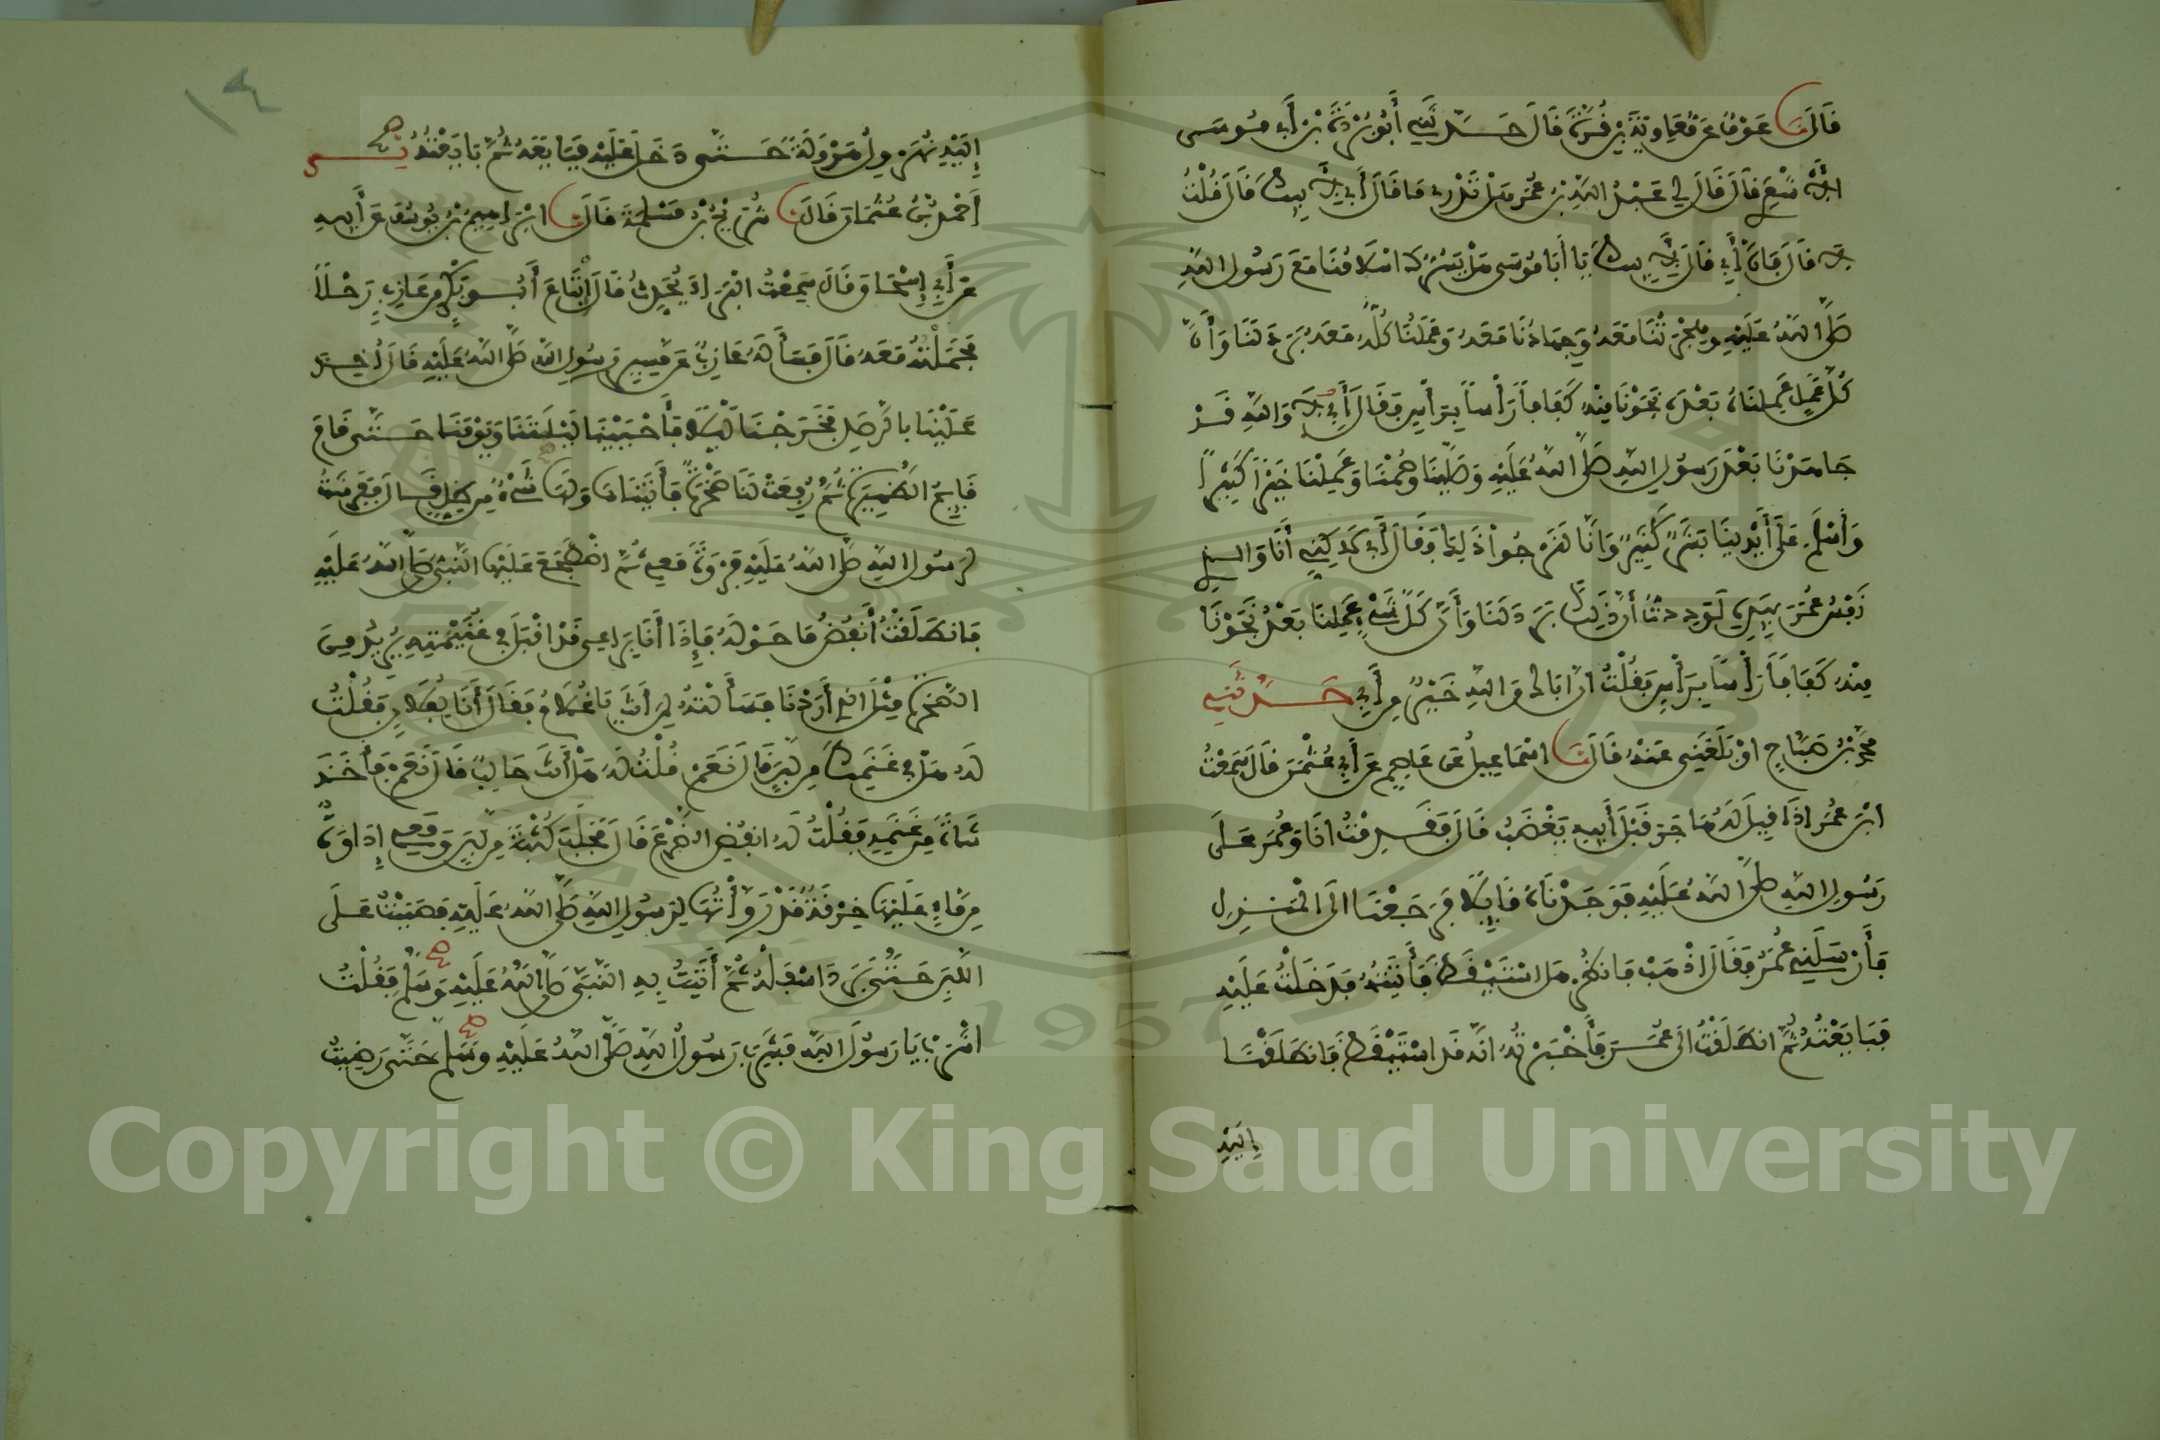 قَالَ نَا عَوْفٌ عَن مُعَاوِيَةَ بْنِ قُرَّةَ قَالَ حَدَّثَنِي أَبُو بُرْدَةَ بْنُ أَبِي مُوسَى
قَالَ قَالَ لِي عَبْدُ اللَّهِ بْنُ عُمَرَ هَلْ تَدْرِي مَا قَالَ أَبِي لِأَبِيكَ قَالَ قُلْتُ
لَا قَالَ فَإِنَّ أَبِي قَالَ لِأَبِيكَ يَا أَبَا مُوسَى هَلْ يَسُرُّكَ اسْلَامُنَا مَعَ رَسُولِ اللَّهِ
صَلَّى اللَّهُ عَلَيْهِ وَهِجْرَتُنَا مَعَهُ وَجِهَادُنَا مَعَهُ وَعَمَلُنَا كُلُّهُ مَعَهُ بَرَدَ لَنَا وَأَنَّ
كُلَّ عَمَلٍ عَمِلْنَاهُ بَعْدَهُ نَجَوْنَا مِنْهُ كَفَافاً رَأْساً بِرَأْسٍ فَقَالَ أَبِي لَا وَاللَّهِ قَدْ
جَاهَدْنَا بَعْدَ رَسُولِ اللَّهِ صَلَّى اللَّهُ عَلَيْهِ وَصَلَّيْنَا وَصُمْنَا وَعَمِلْنَا خَيْراً كَثِيراً
وَأَسْلَمَ عَلَى أَيْدِينَا بَشَرٌ كَثِيرٌ وَإِنَّا لَنَرْجُوا ذَلِكَ فَقَالَ أَبِي لَكِنِّي أَنَا وَالَّذِي
نَفْسُ عُمَرَ بِيَدِهِ لَوَدِدْتُ أَنَّ ذَلِكَ بَرَدَ لَنَا وَأَنَّ كُلَّ شَيْءٍ عَمِلْنَا بَعْدُ نَجَوْنَا
مِنْهُ كَفَافاً رَأْساً بِرَأْسٍ فَقُلْتُ انَّ ابَاكَ وَاللَّهِ خَيْرٌ مِنْ أَبِي حَدَّثَنِي
مُحَمَّدُ بْنُ صَبَّاحٍ اوْ بَلَغَنِي عَنْهُ قَالَ نَا اسْمَاعِيلُ عَن عَاصِمٍ عَن أَبِي عُثْمَنَ قَالَ سَمِعْتُ
ابْنَ عُمَرَ اذَا قِيلَ لَهُ هَاجَرَ قَبْلَ أَبِيهِ يَغْضَبُ قَالَ فَقَدِمْتُ انَا وَعُمَرُ عَلَى
رَسُولِ اللَّهِ صَلَّى اللَّهُ عَلَيْهِ فَوَجَدْنَاهُ قَايِلًا فَرَجَعْنَا الَى الْمَنْزِلِ
فَأَرْسَلَنِي عُمَرُ فَقَالَ اذْهَبْ فَانظُرْ هَلِ اسْتَيْقَظَ فَأَتَيْتُهُ فَدَخَلْتُ عَلَيْهِ
فَبَايَعْتُهُ ثُمَّ انطَلَقْتُ الَى عُمَرَ فَأَخْبَرْتُهُ انَّهُ قَدِ اسْتَيْقَظَ فَانطَلَقْنَا
إِلَيْهِ
١٤
إِلَيْهِ نُهَرْوِلُ هَرْوَلَةً حَتَّى دَخَلَ عَلَيْهِ فَبَايَعَهُ ثُمَّ بَايَعْتُهُ
أَحْمَدُ بْنُ عُثْمَانَ قَالَ نَا شُرَيْحُ بْنُ مَسْلَمَةَ قَالَ نَا ابْرَاهِيمُ بْنُ يُوسُفَ عَن أَبِيهِ
عَنْ أَبِي إِسْحَاقَ قَالَ سَمِعْتُ الْبَرَاءَ يُحَدِّثُ قَالَ ابْتَاعَ أَبُو بَكْرٍ مِنْ عَازِبٍ رَحْلًا
فَحَمَلْتُهُ مَعَهُ قَالَ فَسَأَلَهُ عَازِبٌ عَن مَسِيرِ رَسُولِ اللَّهِ صَلَّى اللَّهُ عَلَيْهِ قَالَ أُخِذَ
عَلَيْنَا بِالرَّصَدِ فَخَرَجْنَا لَيْلًا فَأَحْيَيْنَا لَيْلَتَنَا وَيَوْمَنَا حَتَّى قَامَ
قَايِمُ الظَّهِيرَةِ ثُمَّ رُفِعَتْ لَنَا صَخْرَةٌ فَأَتَيْنَاهَا وَلَهَا شَيْءٌ مِن ظِلٍّ قَالَ فَفَرَشْتُ
لِرَسُولِ اللَّهِ صَلَّى اللَّهُ عَلَيْهِ فَرْوَةً مَعِي ثُمَّ اضْطَجَعَ عَلَيْهَا النَّبِيُّ صَلَّى اللَّهُ عَلَيْهِ
فَانطَلَقْتُ أَنفُضُ مَا حَوْلَهُ فَإِذَا أَنَا بِرَاعِي قَدْ اقْبَلَ فِي غُنَيْمَتِهِ يُرِيدُ مِنَ
الصَّخْرَةِ مِثْلَ الَّذِي أَرَدْنَا فَسَأَلْتُهُ لِمَنْ أَنْتَ يَا غُلَامُ فَقَالَ أَنَا لِفُلَانٍ فَقُلْتُ
لَهُ هَلْ فِي غَنَمِكَ مِن لَبَنٍ قَالَ نَعَمْ قُلْتُ لَهُ هَلْ أَنْتَ حَالِبٌ قَالَ نَعَمْ فَأَخَذَ
شَاةً مِن غَنَمِهِ فَقُلْتُ لَهُ انفُضِ الضَّرْعَ قَالَ فَحَلَبَ كُثْبَةً مِن لَبَنٍ وَمَعِي إِدَاوَةٌ
مِن مَاءٍ عَلَيْهَا خِرْقَةٌ قَدْ رَوَّأْتُهَا لِرَسُولِ اللَّهِ صَلَّى اللَّهُ عَلَيْهِ فَصَبَبْتُ عَلَى
اللَّبَنِ حَتَّى بَرَدَ اسْفَلُهُ ثُمَّ أَتَيْتُ بِهِ النَّبِيَّ صَلَّى اللَّهُ عَلَيْهِ وَسَلَّمَ فَقُلْتُ
اشْرَبْ يَا رَسُولَ اللَّهِ فَشَرِبَ رَسُولُ اللَّهِ صَلَّى اللَّهُ عَلَيْهِ وَسَلَّمَ حَتَّى رَضِيتُ
1957
Copyright © King Saud University